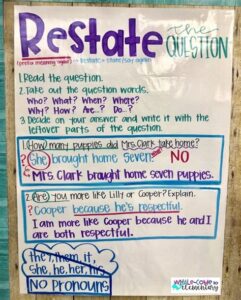 Restate the
QUESTION
(prefix meaning again) restate = state/say again
1 Read the question.
2. Take out the question words.
Who? What? When? Where?
Why? How? Are..? Do..?
3 Decide on your answer and write it with the
leftover parts of the question.
1. How many puppies did Mrs. Clark take home?
? She brought home seven! NO
Mrs. Clark brought home seven puppies.
2. Are you more like Lilly or Cooper? Explain.
? Cooper because he's respectful.
I am more like Cooper because he and I
are both respectful.
the, them, it,
she, he, her, his
NO PRONOUNS
elementary